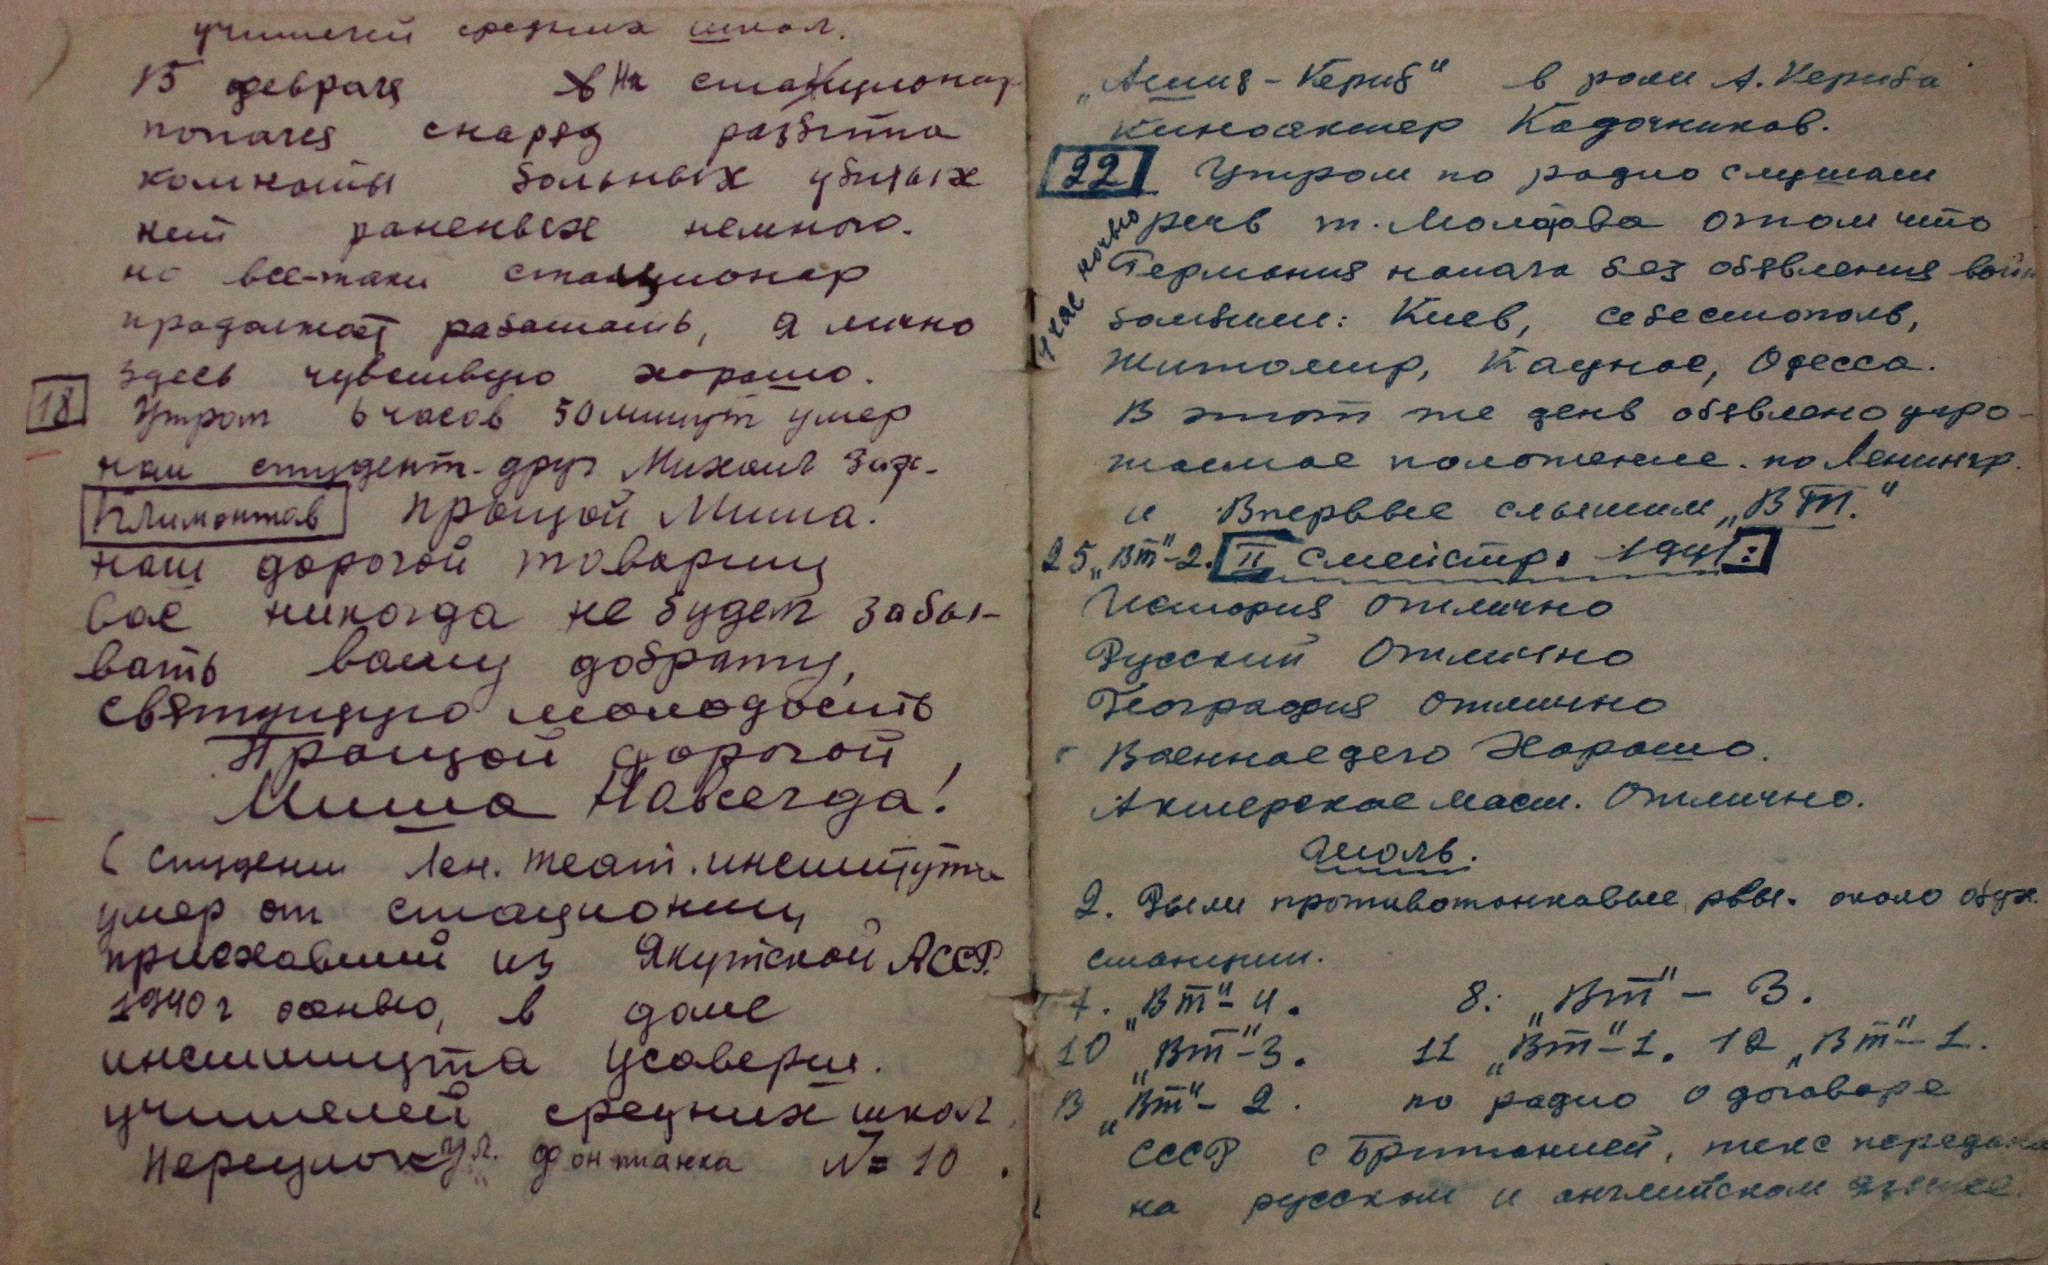 учителей средних школ.
15 февраля в На стационар
попался снаряд разбита
комнаты больных убитых
нет раненых немного.
но все-таки стационар
продолжает работать, я лично
здесь чувствую хорошо.
18 Утром 6 часов 50 минут умер
наш студент-друг Михаил Зах-
Климонтов прощой Миша.
наш дорогой товарищ
вас никогда не будет забы-
вать вашу добрату,
святущую молодость
Прощой дорогой
Миша Навсегда!
(студент Лен. театр. института
умер от стационии
приехавший из Якутской АССР.
1940 г осенью, в доме
института усоверш.
учителей средних школ.
Переулок ул. Фонтанка №10.
„Ашик-Кериб" в роли А. Кериба
киноактер Кадочников.
22 Утром по радио слушаем
речь т. Молотова о том что
Германия напала без обявления войн
бомбили: Киев, Севестополь,
Житомир, Каунас, Одесса.
В этот же день обявлено угро-
жаемое положение. по Ленингр.
1 час ночью
и Впервые слышим „ВТ."
25 „ВТ"-2. II сместр. 1941:
История отлично
Русский Отлично
География отлично
Военное дело Хорошо.
Актерское маст. Отлично.
Июль.
2. Рыли противотанковые рвы. около обух.
станции.
7. „ВТ"-4. 8: „ВТ" - 3.
10 „ВТ"-3. 11 „ВТ"-1. 12 „ВТ"-1.
13 „ВТ"-2. по радио о договоре
СССР с Британией, текс передали
на русском и английском языке.